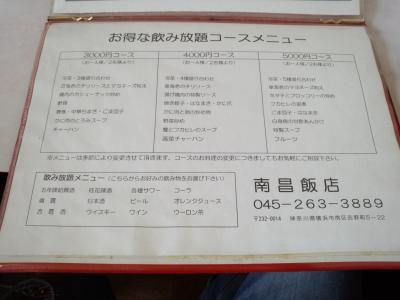 お得な飲み放題コースメニュー
3000円コース
(お一人様／2名様より)
冷菜・3種盛り合わせ
鶏肉のカシューナッツ炒め
酢豚
春捲・中華ちまき・ごま団子
かに肉のとろみスープ
チャーハン
4000円コース
(お一人様／2名様より)
冷菜・4種盛り合わせ
車海老のチリソース
揚げ鶏肉の特製ソース
焼き餃子・はなまき・かに爪
かに肉と卵の炒め物
野菜炒め
蟹とフカヒレのスープ
高菜チャーハン
5000円コース
(お一人様／2名様より)
冷菜・5種盛り合わせ
車海老のマヨネーズ和え
ホタテとブロッコリーの炒め
フカヒレの姿煮
ごま団子・はなまき
白身魚の甘酢あんかけ
特製スープ
フルーツ
※メニューは季節により変更させて頂きます。コースのお料理の変更につきましてもお気軽にご相談下さい。
飲み放題メニュー (こちらからお好みの飲み物をお選び下さい)
五年陳紹興酒 桂花陳酒 各種サワー コーラ
焼酎 日本酒 ビール オレンジジュース
杏露酒 ウイスキー ワイン ウーロン茶
南昌飯店
045-263-3889
〒232-0014 神奈川県横浜市南区吉野町5-22